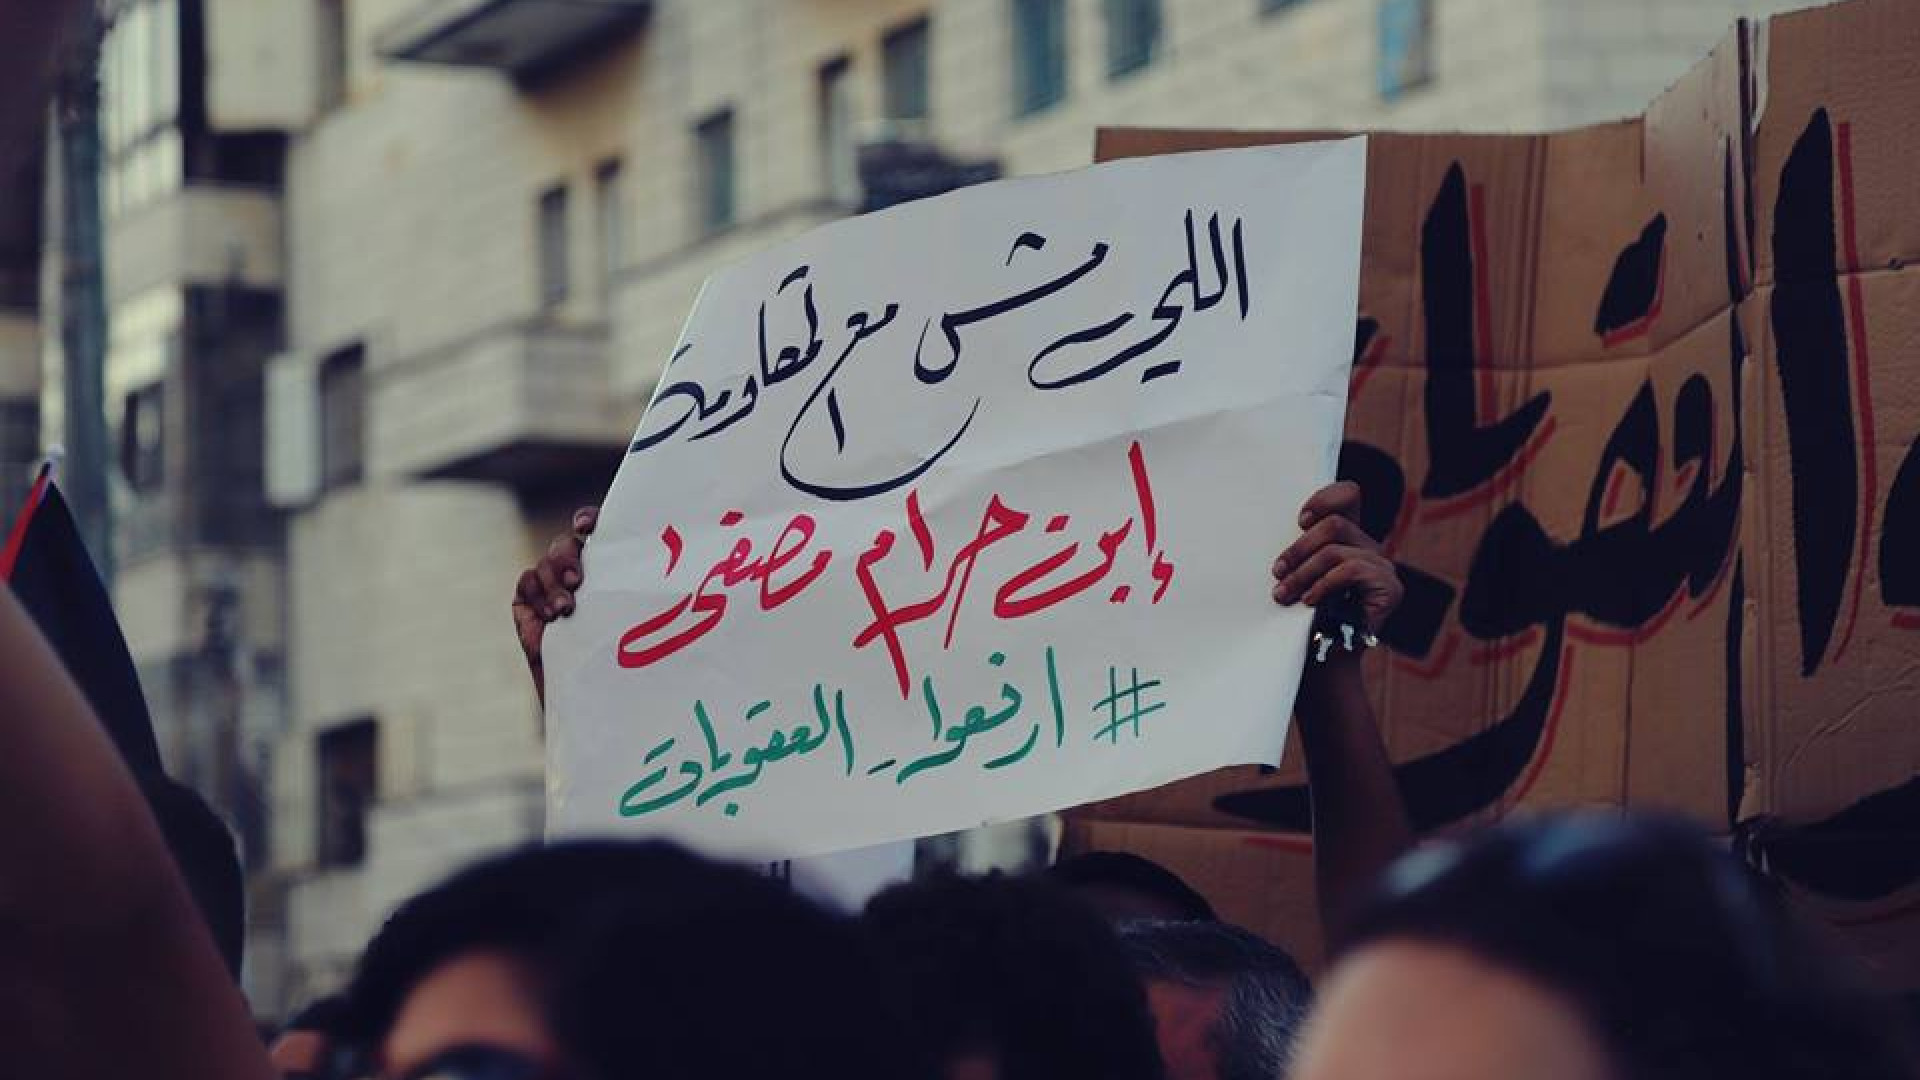 اللي مش مع المقاومة
إبن حرام مصفى
#ارفعوا_العقوبات
العقوبات